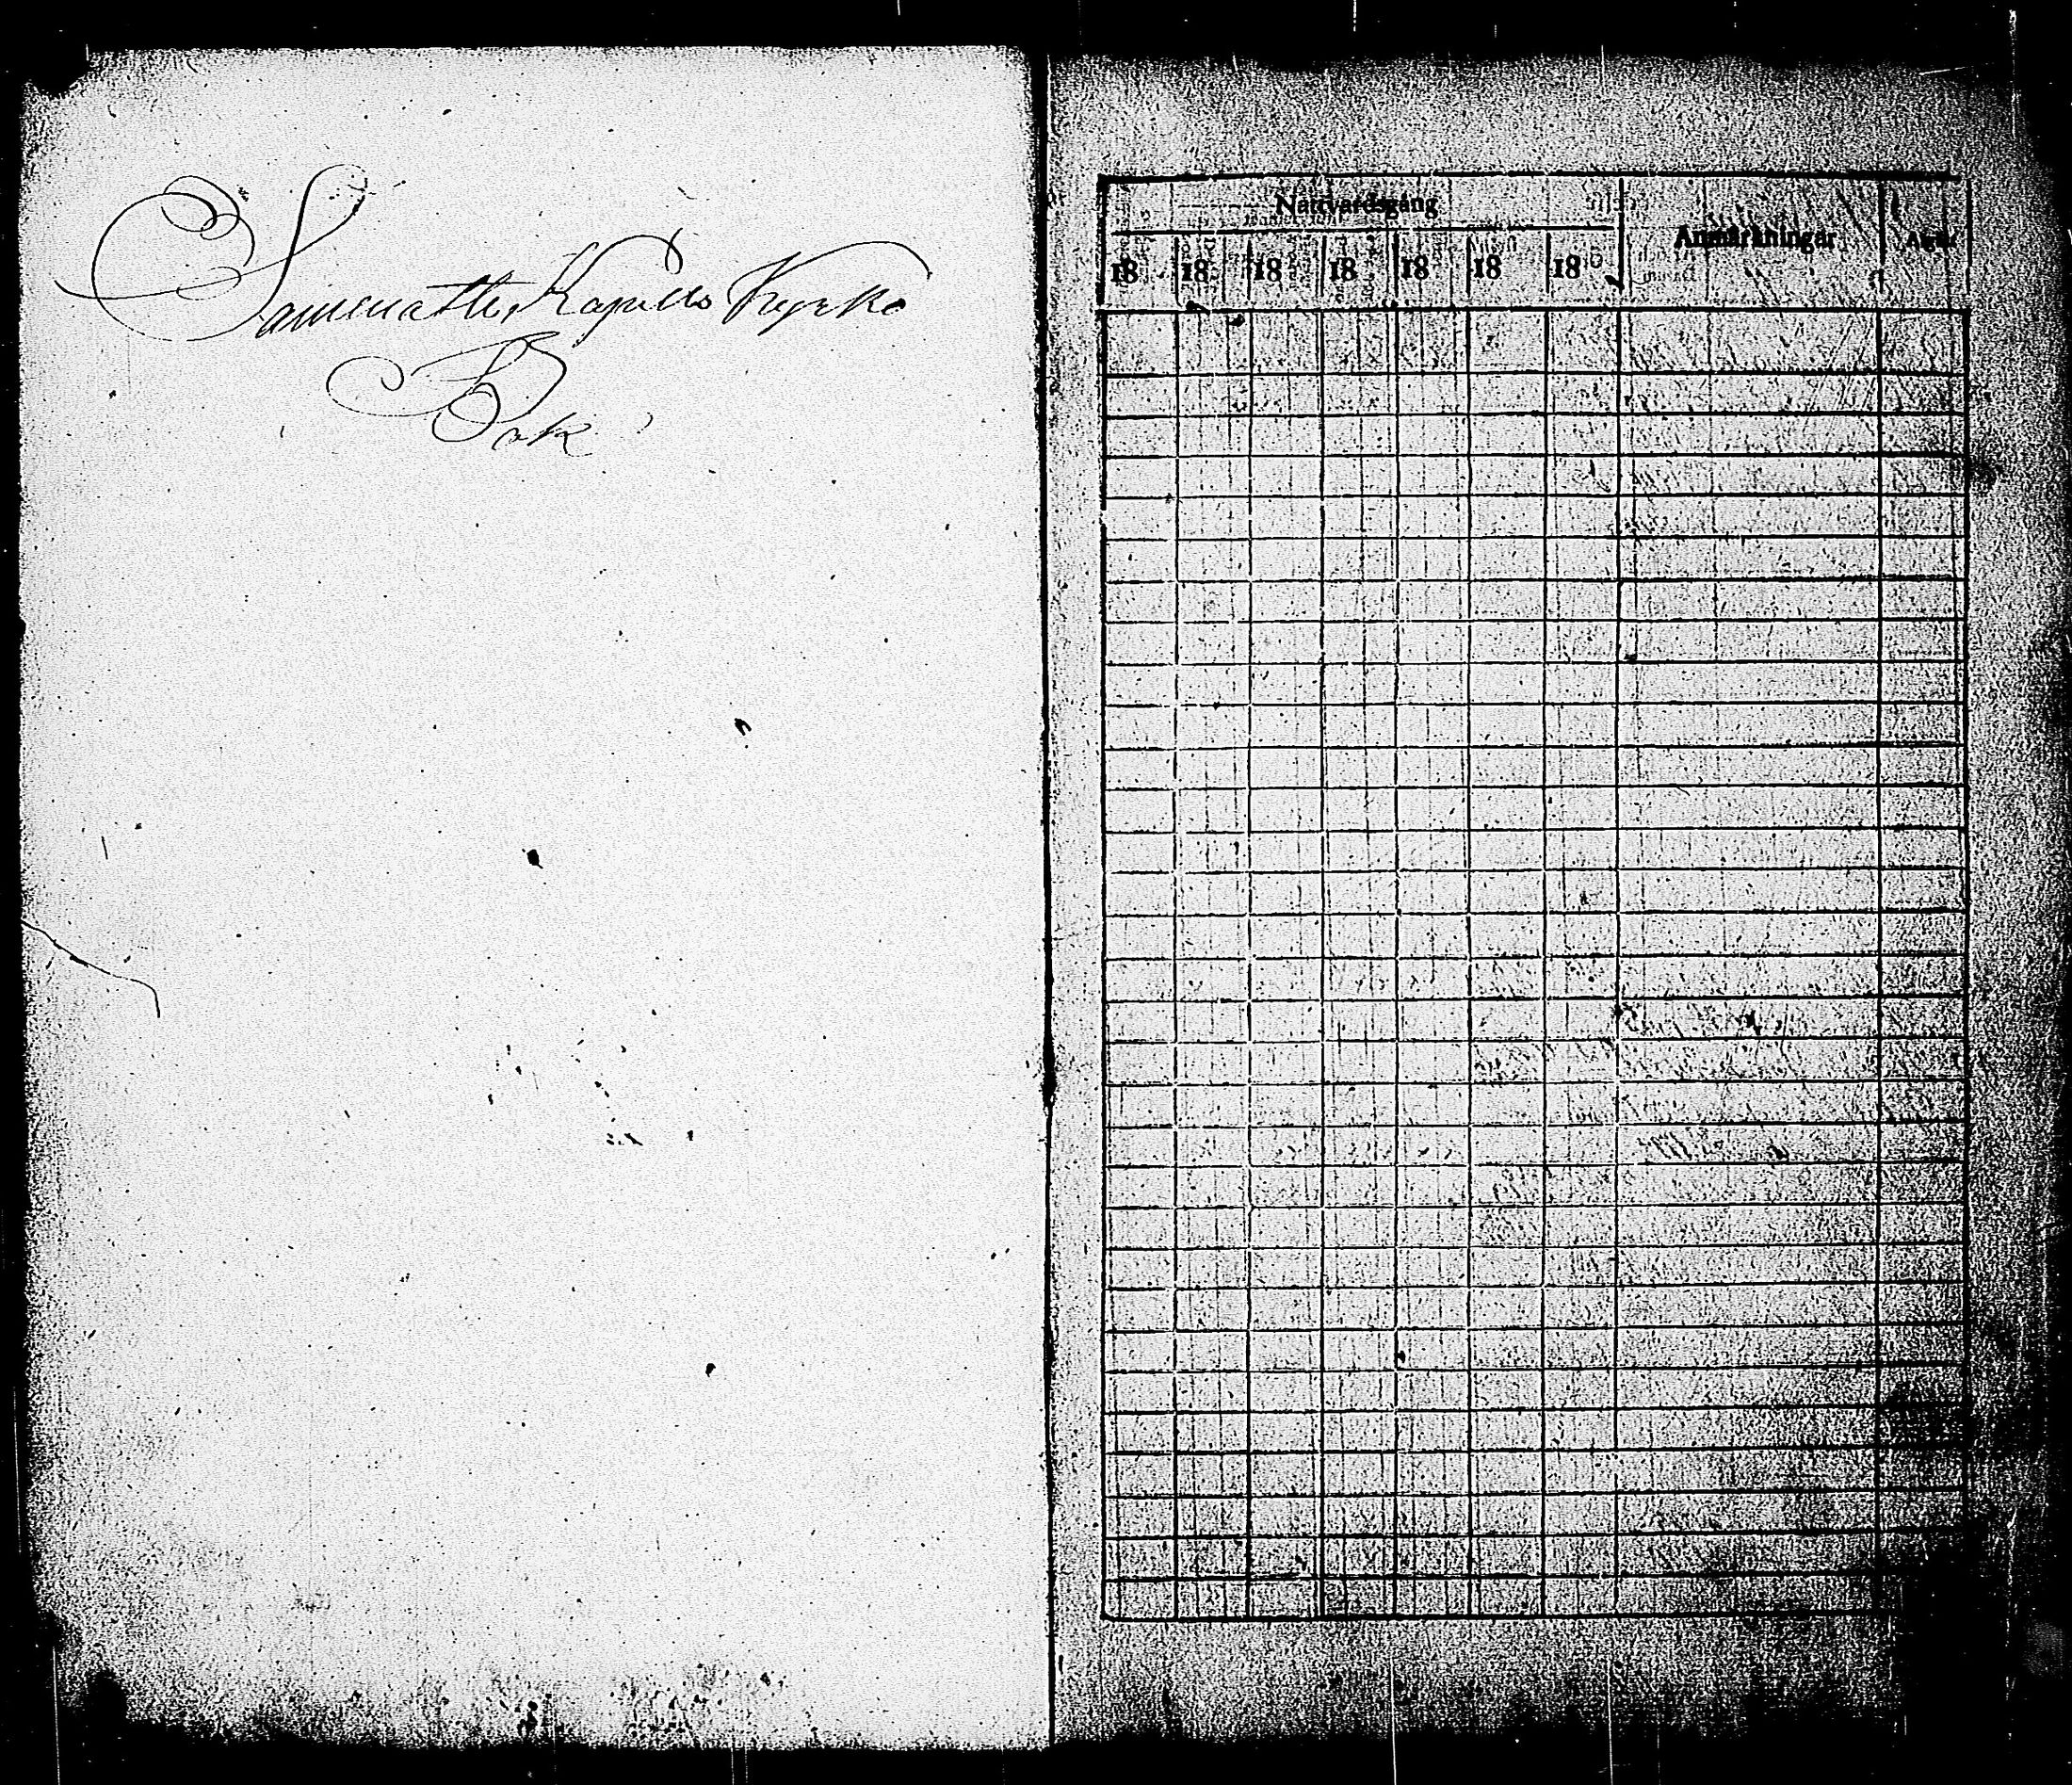 Sammatti Kapells Kyrko
Bok
Nattvardsgång
Anmärkningar
Afgår
18 18 18 18 18 18 18